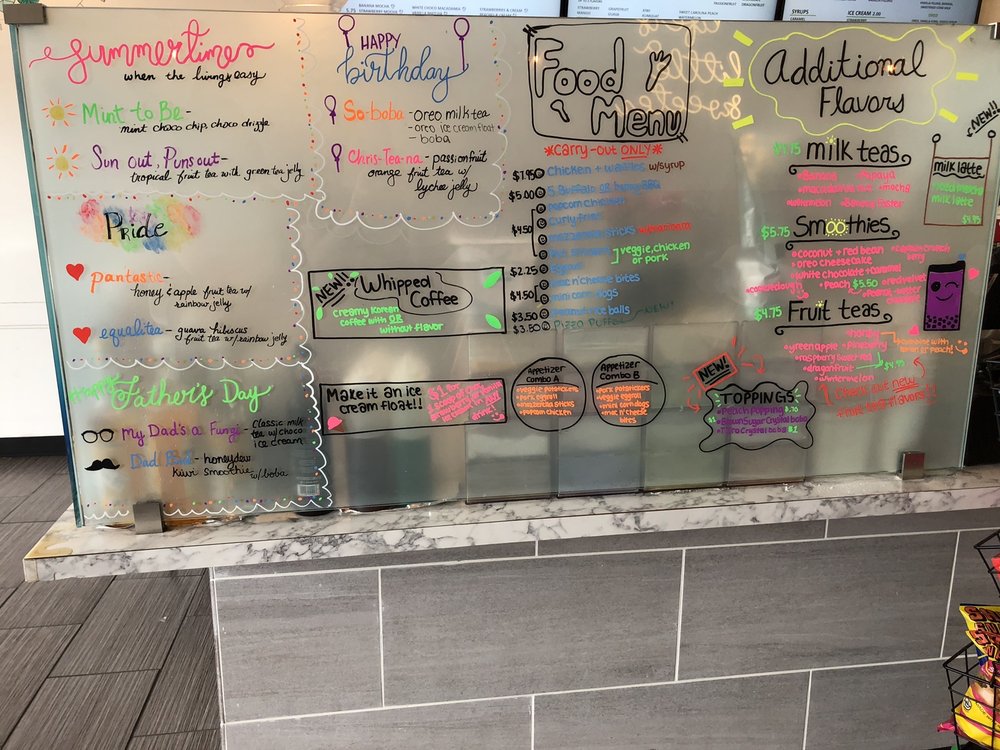 summertimes
when the living's easy
Mint to Be -
mint choco chip, choco drizzle
Sun out, Puns out -
tropical fruit tea with green tea jelly
Pride
pantastic -
honey & apple fruit tea w/
rainbow jelly
equalitea - guava hibiscus
fruit tea w/ rainbow jelly
Happy
Father's Day
my Dad's a Fungi - classic milk
tea w/ choco
ice cream
Dad - honeydew
kiwi smoothie w/ boba
HAPPY
birthday
So-boba - oreo milk tea
- oreo ice cream float
- boba
Chris-Tea-na - passionfruit
orange fruit tea w/
lychee jelly
NEW!!
Whipped
Coffee
creamy korean
coffee with OR
without flavor
Make it an ice
cream float!!
$1 for
Food
Menu
*Carry-out ONLY*
$7.95 Chicken + waffles w/syrup
$5.00 5 Buffalo or BBQ
popcorn chicken
$4.50 curly fries
mozzarella sticks
veggie, chicken
or pork
$2.25 Eggroll
$4.50 mac n cheese bites
mini corn dogs
$3.50 balls
$3.50 Pizza Puffs NEW!
Appetizer
Combo A
veggie potstickers
pork eggroll
mozzarella sticks
popcorn chicken
Appetizer
Combo B
pork potstickers
veggie eggroll
mini corn dogs
mac n' cheese
bites
NEW!
TOPPINGS
Peach Popping $.70
$1 Brown Sugar Crystal boba
Taro Crystal boba $1
Additional
Flavors
milk teas
Banana Papaya
mocha
watermelon
$5.75 Smoothies
coconut + red bean captain crunch
berry
oreo cheesecake
white chocolate + caramel
cookie dough peach $5.50 red velvet
peanut butter
$4.75 Fruit teas
honey
green apple pineberry combine with
or peach!
raspberry
dragonfruit $4.95
watermelon
Check out new
fruit tea flavors!!
NEW!!
milk latte
milk latte
$4.95
SYRUPS
CARAMEL
ICE CREAM 2.00